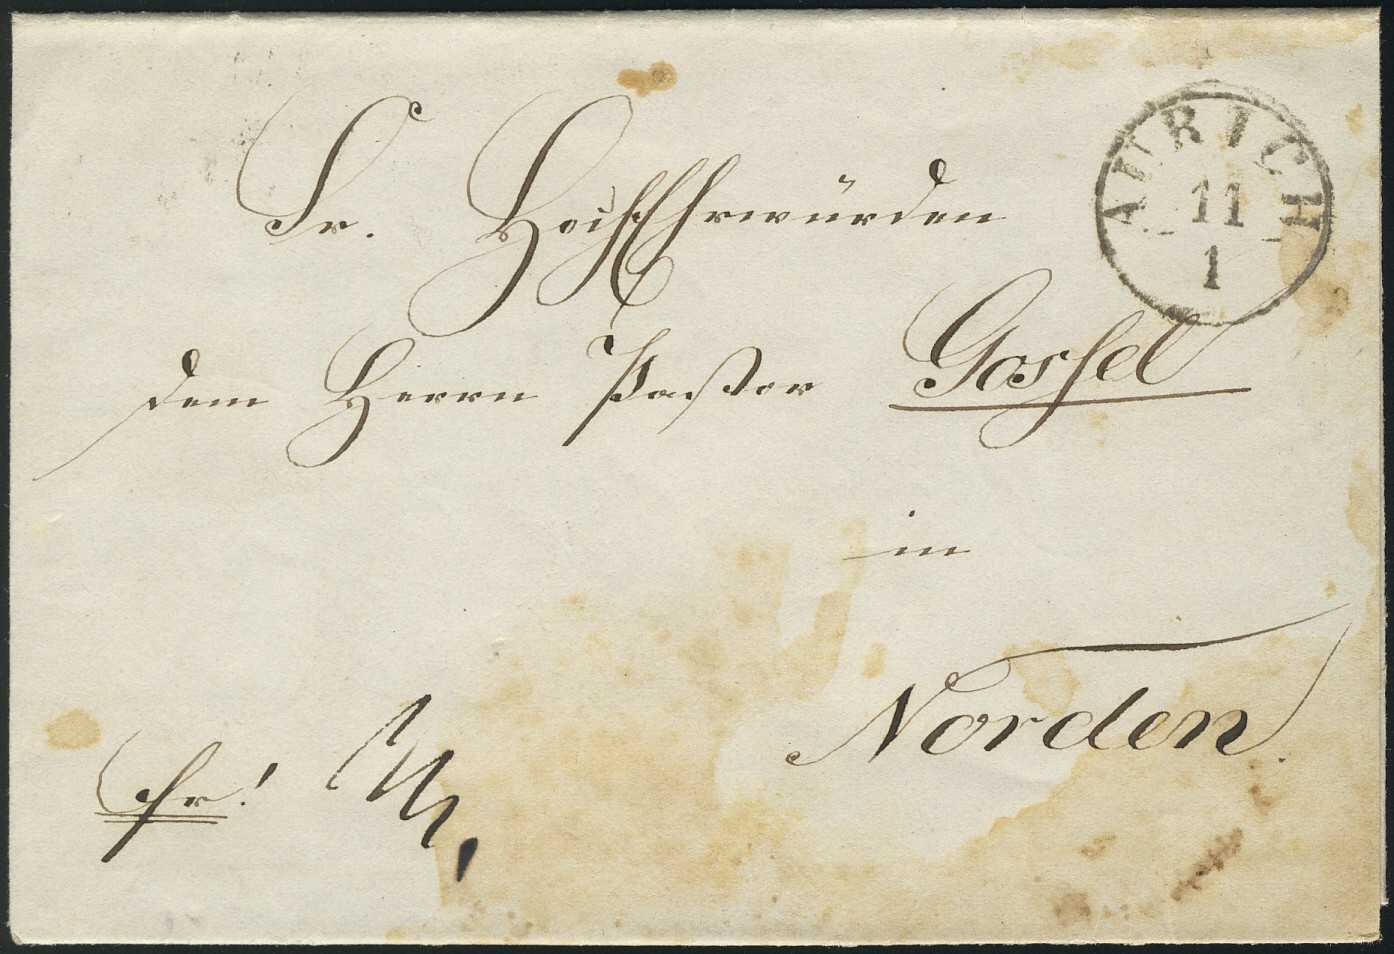 AURICH
11
1
Sr. Hochehrwürden
dem Herrn Pastor Gossel
in
Norden.
fr!